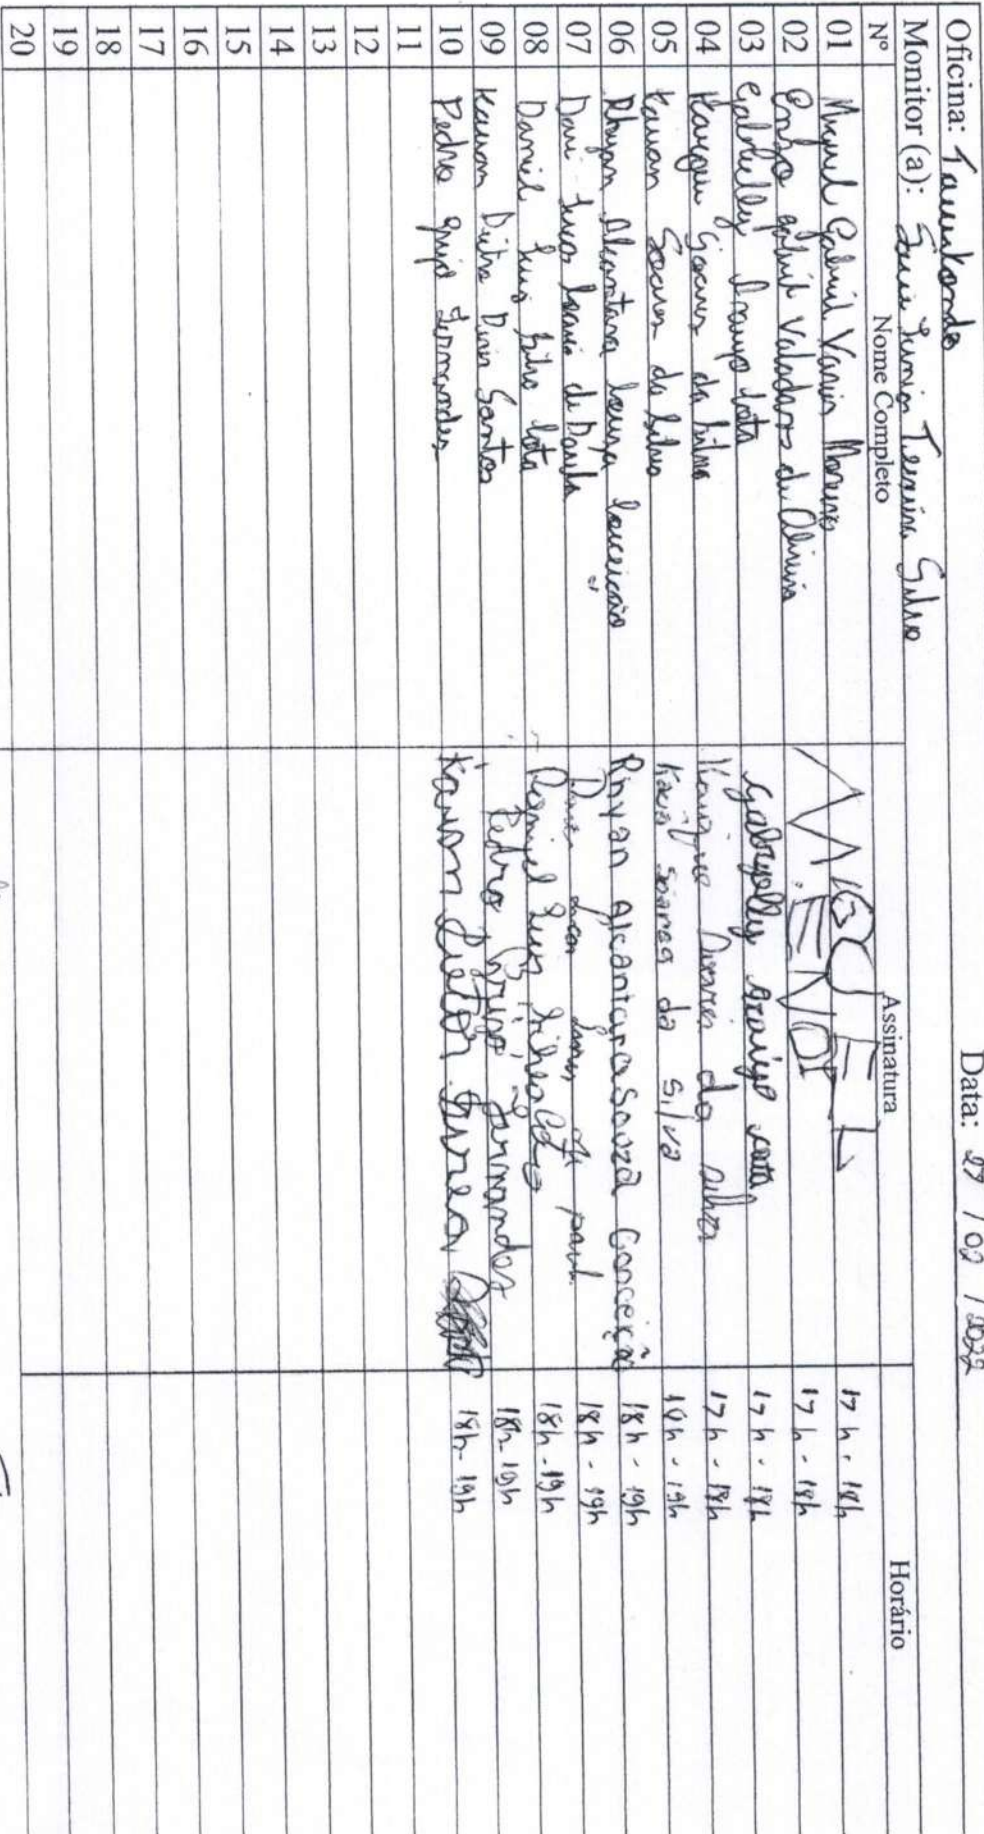 Oficina: Taekwondo Data: 27 / 02 / 2022
Monitor (a): Junior Teixeira Silva
Nº Nome Completo Assinatura Horário
01 Miguel Gabriel Moreira MIGUEL 17h - 18h
02 Enzo gabriel Valadares de Oliveira ENZO 17h - 18h
03 Gabrielly Araujo Cota Gabryelly araujo cota 17h - 18h
04 Kauque Soares da Silva Kauque Soares da Silva 17h - 18h
05 Kauan Soares da Silva Soares da Silva 18h - 19h
06 Rhyan Alcantara Souza Conceição Rhyan Alcantara Souza Conceição 18h - 19h
07 Davi Lucas de Paula Davi Lucas de paul 18h - 19h
08 Daniel Luis Silva Cota Daniel Luis Silva 18h - 19h
09 Kauan Santos Pedro Fernandes 18h - 19h
10 Pedro Fernandes Kauan 18h - 19h
11
12
13
14
15
16
17
18
19
20